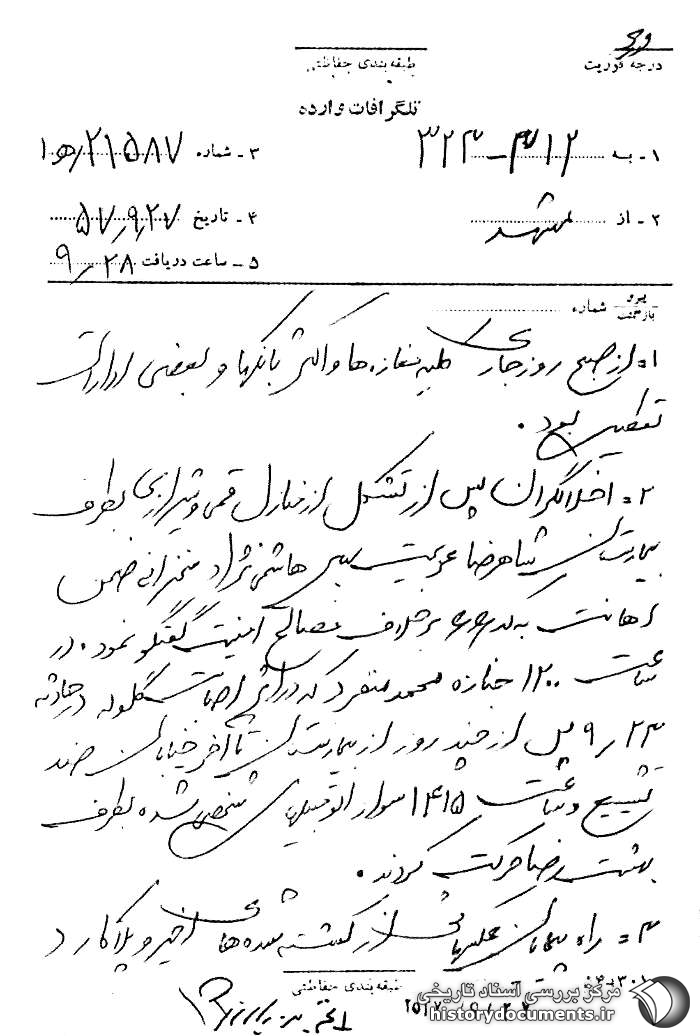 درجه فوریت
طبقه بندی حفاظتی
تلگرافات وارده
۱ - به ۳۱۲ - ۳۲۳
۳ - شماره ۲۱۵۸۷ / ه‍ ۱
۲ - از مشهد
۴ - تاریخ ۵۷٫۹٫۲۷
۵ - ساعت دریافت ۹٫۲۸
پیرو
بازگشت شماره
۱- از صبح روز جاری کلیه مغازه ها و اکثر بانکها و بعضی ادارات
تعطیل بود.
۲- اخلالگران پس از تشکل از منازل قمی و شیرازی بطرف
بیمارستان شاهرضا عزیمت سپس هاشمی نژاد سخنرانی ضمن
اهانت به برخلاف مصالح امنیت گفتگو نمود. در
ساعت ۱۲۰۰ جنازه محمد منفرد که در اثر اصابت گلوله در حادثه
۹٫۲۳ پس از چند روز از بیمارستان تا آخر خیابان
تشییع و ساعت ۱۴۱۵ سوار اتومبیلهای شخصی شده بطرف
بهشت رضا حرکت کردند.
۳- راه پیمایان عکسهائی از کشته شده های اخیر و پلاکارد
طبقه بندی حفاظتی
۰۴-۳۰۱
مرکز بررسی اسناد تاریخی
historydocuments.ir